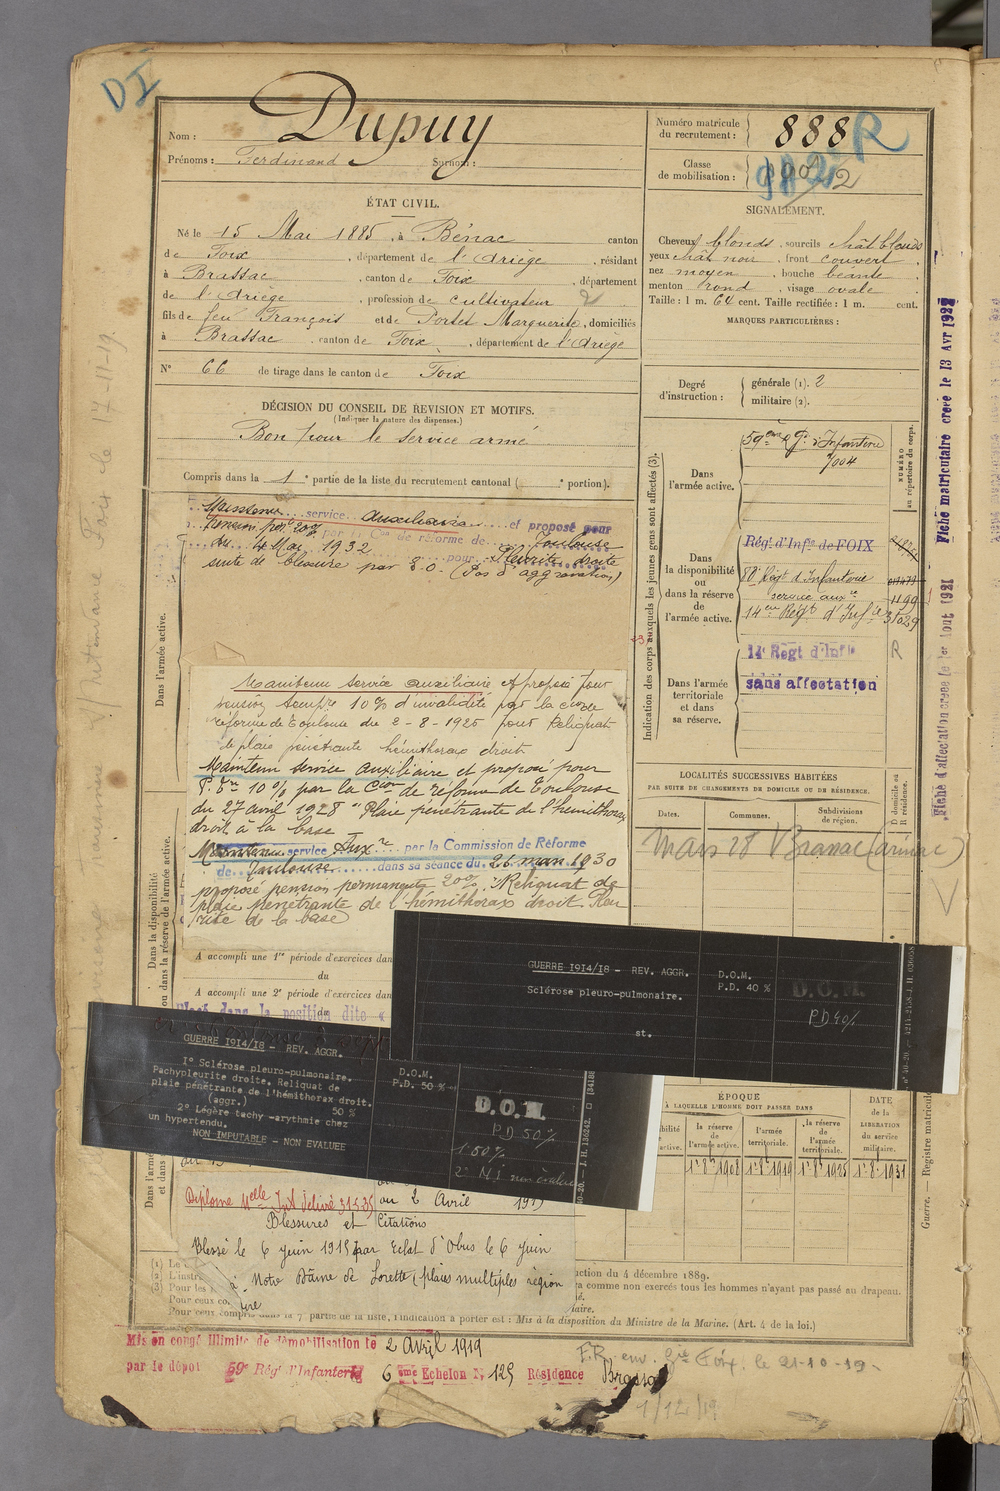 DI
Nom : Dupuy
Prénoms : Ferdinand Surnom :
ÉTAT CIVIL.
Né le 15 Mai 1885, à Bénac canton
de Foix, département de l'Ariège, résidant
à Brassac, canton de Foix, département
de l'Ariège, profession de cultivateur 2
fils de feu François et de Portet Marguerite, domiciliés
à Brassac, canton de Foix, département de l'Ariège
N° 66 de tirage dans le canton de Foix
DÉCISION DU CONSEIL DE REVISION ET MOTIFS.
(Indiquer la nature des dispenses.)
Bon pour le service armé
Compris dans la 1e partie de la liste du recrutement cantonal ( e portion).
Maintenu service auxiliaire et proposé pour
pension per. 20% par la Con de réforme de Toulouse
du 4 Mai 1932 pour Pleurite droite
suite de blessure par E.O. (Pas d'aggravation)
Maintenu service auxiliaire et proposé pour
pension tempre 10% d'invalidité par la cion de
réforme de Toulouse du 2-8-1925 pour Reliquat
de plaie pénétrante hémithorax droit
Maintenu service auxiliaire et proposé pour
P. Tre 10% par la Cion de réforme de Toulouse
du 27 avril 1928 "Plaie pénétrante de l'hémithorax
droit à la base
Maintenu service Auxre par la Commission de Réforme
de Toulouse dans sa séance du 26 mars 1930
proposé pension permanente 20% "Reliquat de
plaie pénétrante de l'hémithorax droit. Pleu
rite de la base
A accompli une 1re période d'exercices dan
du
A accompli une 2e période d'exercices dan
du
Placé dans la position dite «
GUERRE 1914/18 - REV. AGGR.
1° Sclérose pleuro-pulmonaire.
Pachypleurite droite. Reliquat de
plaie pénétrante de l'hémithorax droit.
(aggr.) 50 %
2° Légère tachy-arythmie chez
un hypertendu.
NON IMPUTABLE - NON EVALUEE
D.O.M.
P.D. 50 %
D.O.M.
PD 50%
1° 50%
2° N.I. non évaluée
GUERRE 1914/18 - REV. AGGR.
Sclérose pleuro-pulmonaire.
st.
D.O.M.
P.D. 40 %
D.O.M.
PD 40%
Diplome Melle Int délivré 31535
au 2 Avril 1919
Blessures et Citations
Blessé le 6 juin 1915 par Eclat d'Obus le 6 juin
à Notre Dâme de Lorette (plaies multiples région
Numéro matricule du recrutement : 888 R
Classe de mobilisation :
982
SIGNALEMENT.
Cheveux blonds, sourcils chât blonds
yeux chât noir, front couvert
nez moyen, bouche béante
menton rond, visage ovale
Taille : 1 m. 64 cent. Taille rectifiée : 1 m. cent.
MARQUES PARTICULIÈRES :
Degré d'instruction : générale (1). 2
militaire (2).
Indication des corps auxquels les jeunes gens sont affectés (3).
NUMÉRO au répertoire du corps.
Dans l'armée active.
59ème Rgt d'Infanterie
7004
Dans la disponibilité ou dans la réserve de l'armée active.
Régt d'Infie de FOIX
88e Régt d'Infanterie
service auxre 1199
14eme Régt d'Infie 31029
Dans l'armée territoriale et dans sa réserve.
14e Régt d'Infie R
sans affectation
LOCALITÉS SUCCESSIVES HABITÉES
PAR SUITE DE CHANGEMENTS DE DOMICILE OU DE RÉSIDENCE.
Dates. Communes. Subdivisions de région. D domicile ou R résidence.
Mars 28
ÉPOQUE
À LAQUELLE L'HOMME DOIT PASSER DANS
la réserve de l'armée active. l'armée territoriale. la réserve de l'armée territoriale.
DATE de la LIBÉRATION du service militaire.
1r 8bre 1908 1r 8bre 1919 1r 8bre 1925 1r 8bre 1931
ction du 4 décembre 1889.
comme non exercés tous les hommes n'ayant pas passé au drapeau.
Pour ceux compris dans la 7e partie de la liste, l'indication à porter est : Mis à la disposition du Ministre de la Marine. (Art. 4 de la loi.)
Mis en congé illimité de démobilisation le 2 Avril 1919
par le dépôt 59e Rég d'Infanterie 6ème Echelon N° 125 Résidence Brassac
F.R. env. Gie Foix, le 21-10-19-
1/12/19
Dans l'armée active.
Dans la disponibilité ou dans la réserve de l'armée active.
Fiche matriculaire créée le 13 Avr 1922
Fiche d'affectation créée le 1er Aout 1921
Guerre. — Registre matricule